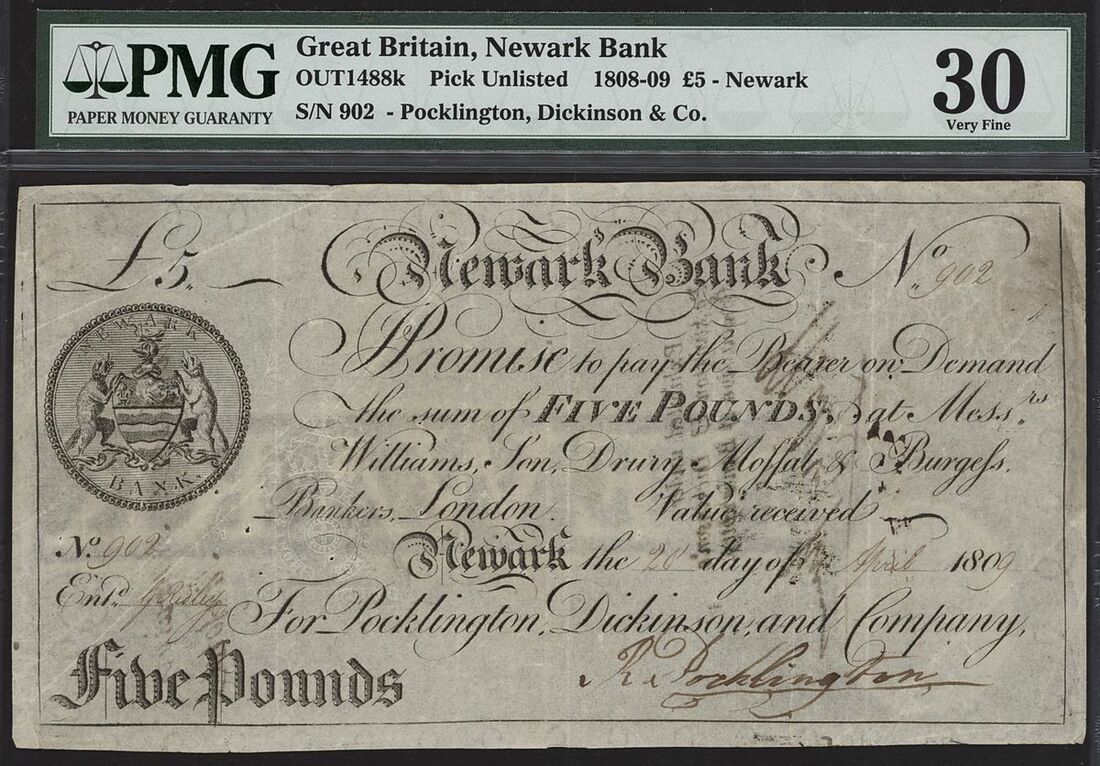 PMG
PAPER MONEY GUARANTY
Great Britain, Newark Bank
OUT1488k Pick Unlisted 1808-09 £5 - Newark
S/N 902 - Pocklington, Dickinson & Co.
30
Very Fine
£5. Newark Bank No. 902
I Promise to pay the Bearer on Demand
the sum of FIVE POUNDS, at Messrs.
Williams, Son, Drury, Moffat & Burgess,
Bankers, London. Value received
NEWARK
BANK
No. 902
Newark the 20 day of April 1809
Entd.
For Pocklington, Dickinson, and Company,
Five Pounds
R Pocklington